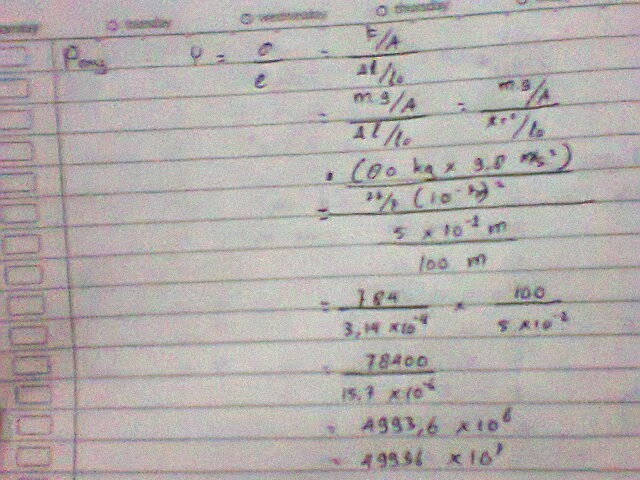 tuesday wednesday thursday
Y = σ/e = F/A / Δl/l₀
= m.g/A / Δl/l₀ = m.g/A / /l₀
(80 kg x 9.8 m/s²) / 22/7 (10⁻²)²
= 5 x 10⁻² m / 100 m
= 784 / 3,14 x 10⁻⁴ x 100 / 5 x 10⁻²
= 78400 / 15.7 x 10⁻⁶
= 4993,6 x 10⁶
= 49936 x 10⁵